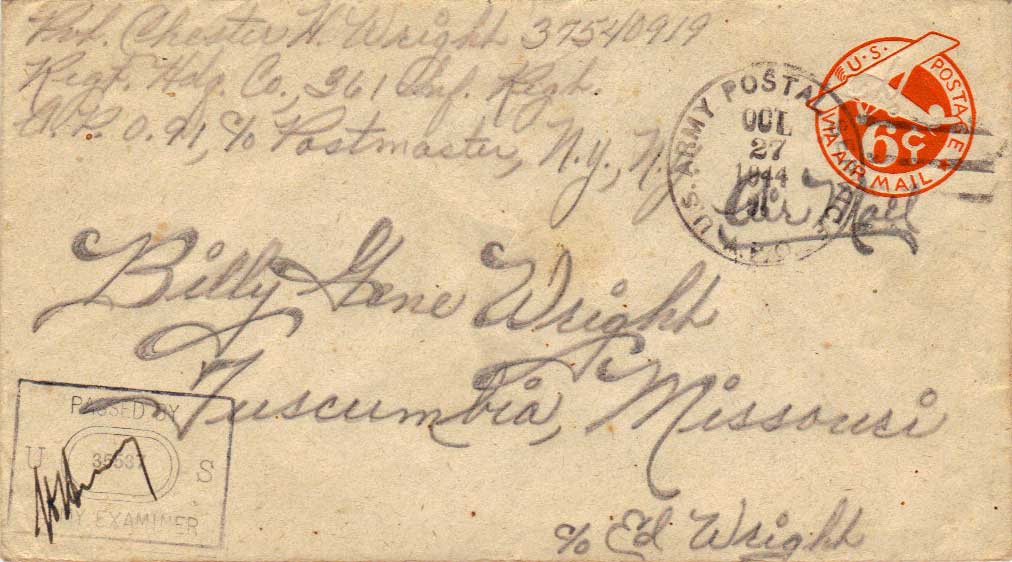 Pvt. Chester H. Wright 37540919
Regt. Hdq. Co., 361 Inf. Regt.
A.P.O. 91, c/o Postmaster, N.Y., N.Y.
U.S. ARMY POSTAL
OCT
27
1944
A.P.O.
U.S. POSTAGE
6¢
VIA AIR MAIL
Air Mail
Billy Gene Wright
Tuscumbia, Missouri
c/o Ed Wright
PASSED BY
U 35537 S
ARMY EXAMINER